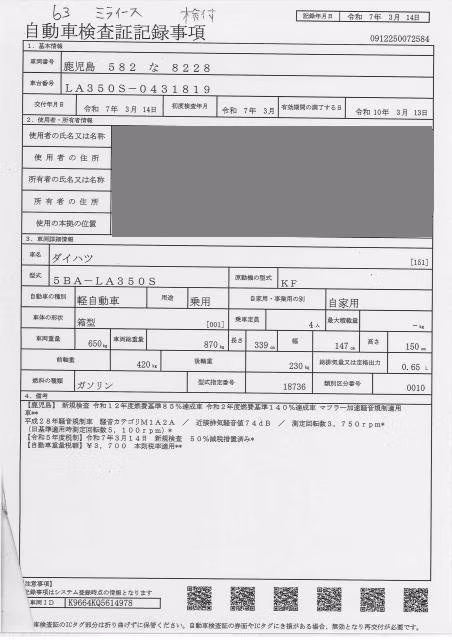 63 ミライース 検付
記録年月日 令和 7年 3月 14日
自動車検査証記録事項
0912250072584
1．基本情報
車両番号 鹿児島 582 な 8228
車台番号 LA350S-0431819
交付年月日 令和 7年 3月 14日 初度検査年月 令和 7年 3月 有効期間の満了する日 令和 10年 3月 13日
2．使用者・所有者情報
使用者の氏名又は名称
使用者の住所
所有者の氏名又は名称
所有者の住所
使用の本拠の位置
3．車両詳細情報
車名 ダイハツ [151]
型式 5BA-LA350S 原動機の型式 KF
自動車の種別 軽自動車 用途 乗用 自家用・事業用の別 自家用
車体の形状 箱型 [001] 乗車定員 4人 最大積載量 -kg
車両重量 650kg 車両総重量 870kg 長さ 339cm 幅 147cm 高さ 150cm
前軸重 420kg 後軸重 230kg 総排気量又は定格出力 0.65 L
燃料の種類 ガソリン 型式指定番号 18736 類別区分番号 0010
4．備考
【鹿児島】 新規検査 令和12年度燃費基準85%達成車 令和2年度燃費基準140%達成車 マフラー加速騒音規制適用
車**
平成28年騒音規制車 騒音カテゴリM1A2A ／ 近接排気騒音値74dB ／ 測定回転数3，750rpm*
（旧基準適用時測定回転数5，100rpm）*
【令和5年度税制】令和7年3月14日 新規検査 50%減税措置済み*
【自動車重量税額】¥3，700 本則税率適用**
注意事項】
記録事項はシステム登録時点の情報となります
車両ID K9664KQ5614978
車検査証のICタグ部分は折り曲げずに保管ください。自動車検査証の券面やICタグにき損がある場合、無効となり再交付が必要です。